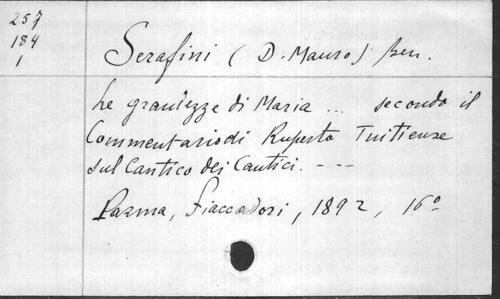 257
184
1
Serafini (D. Mauro) Ben.
Le grandezze di Maria ... secondo il
Commentario di Ruperto Tuitiense
sul Cantico dei Cantici. ---
Parma, Fiaccadori, 1892, 16º